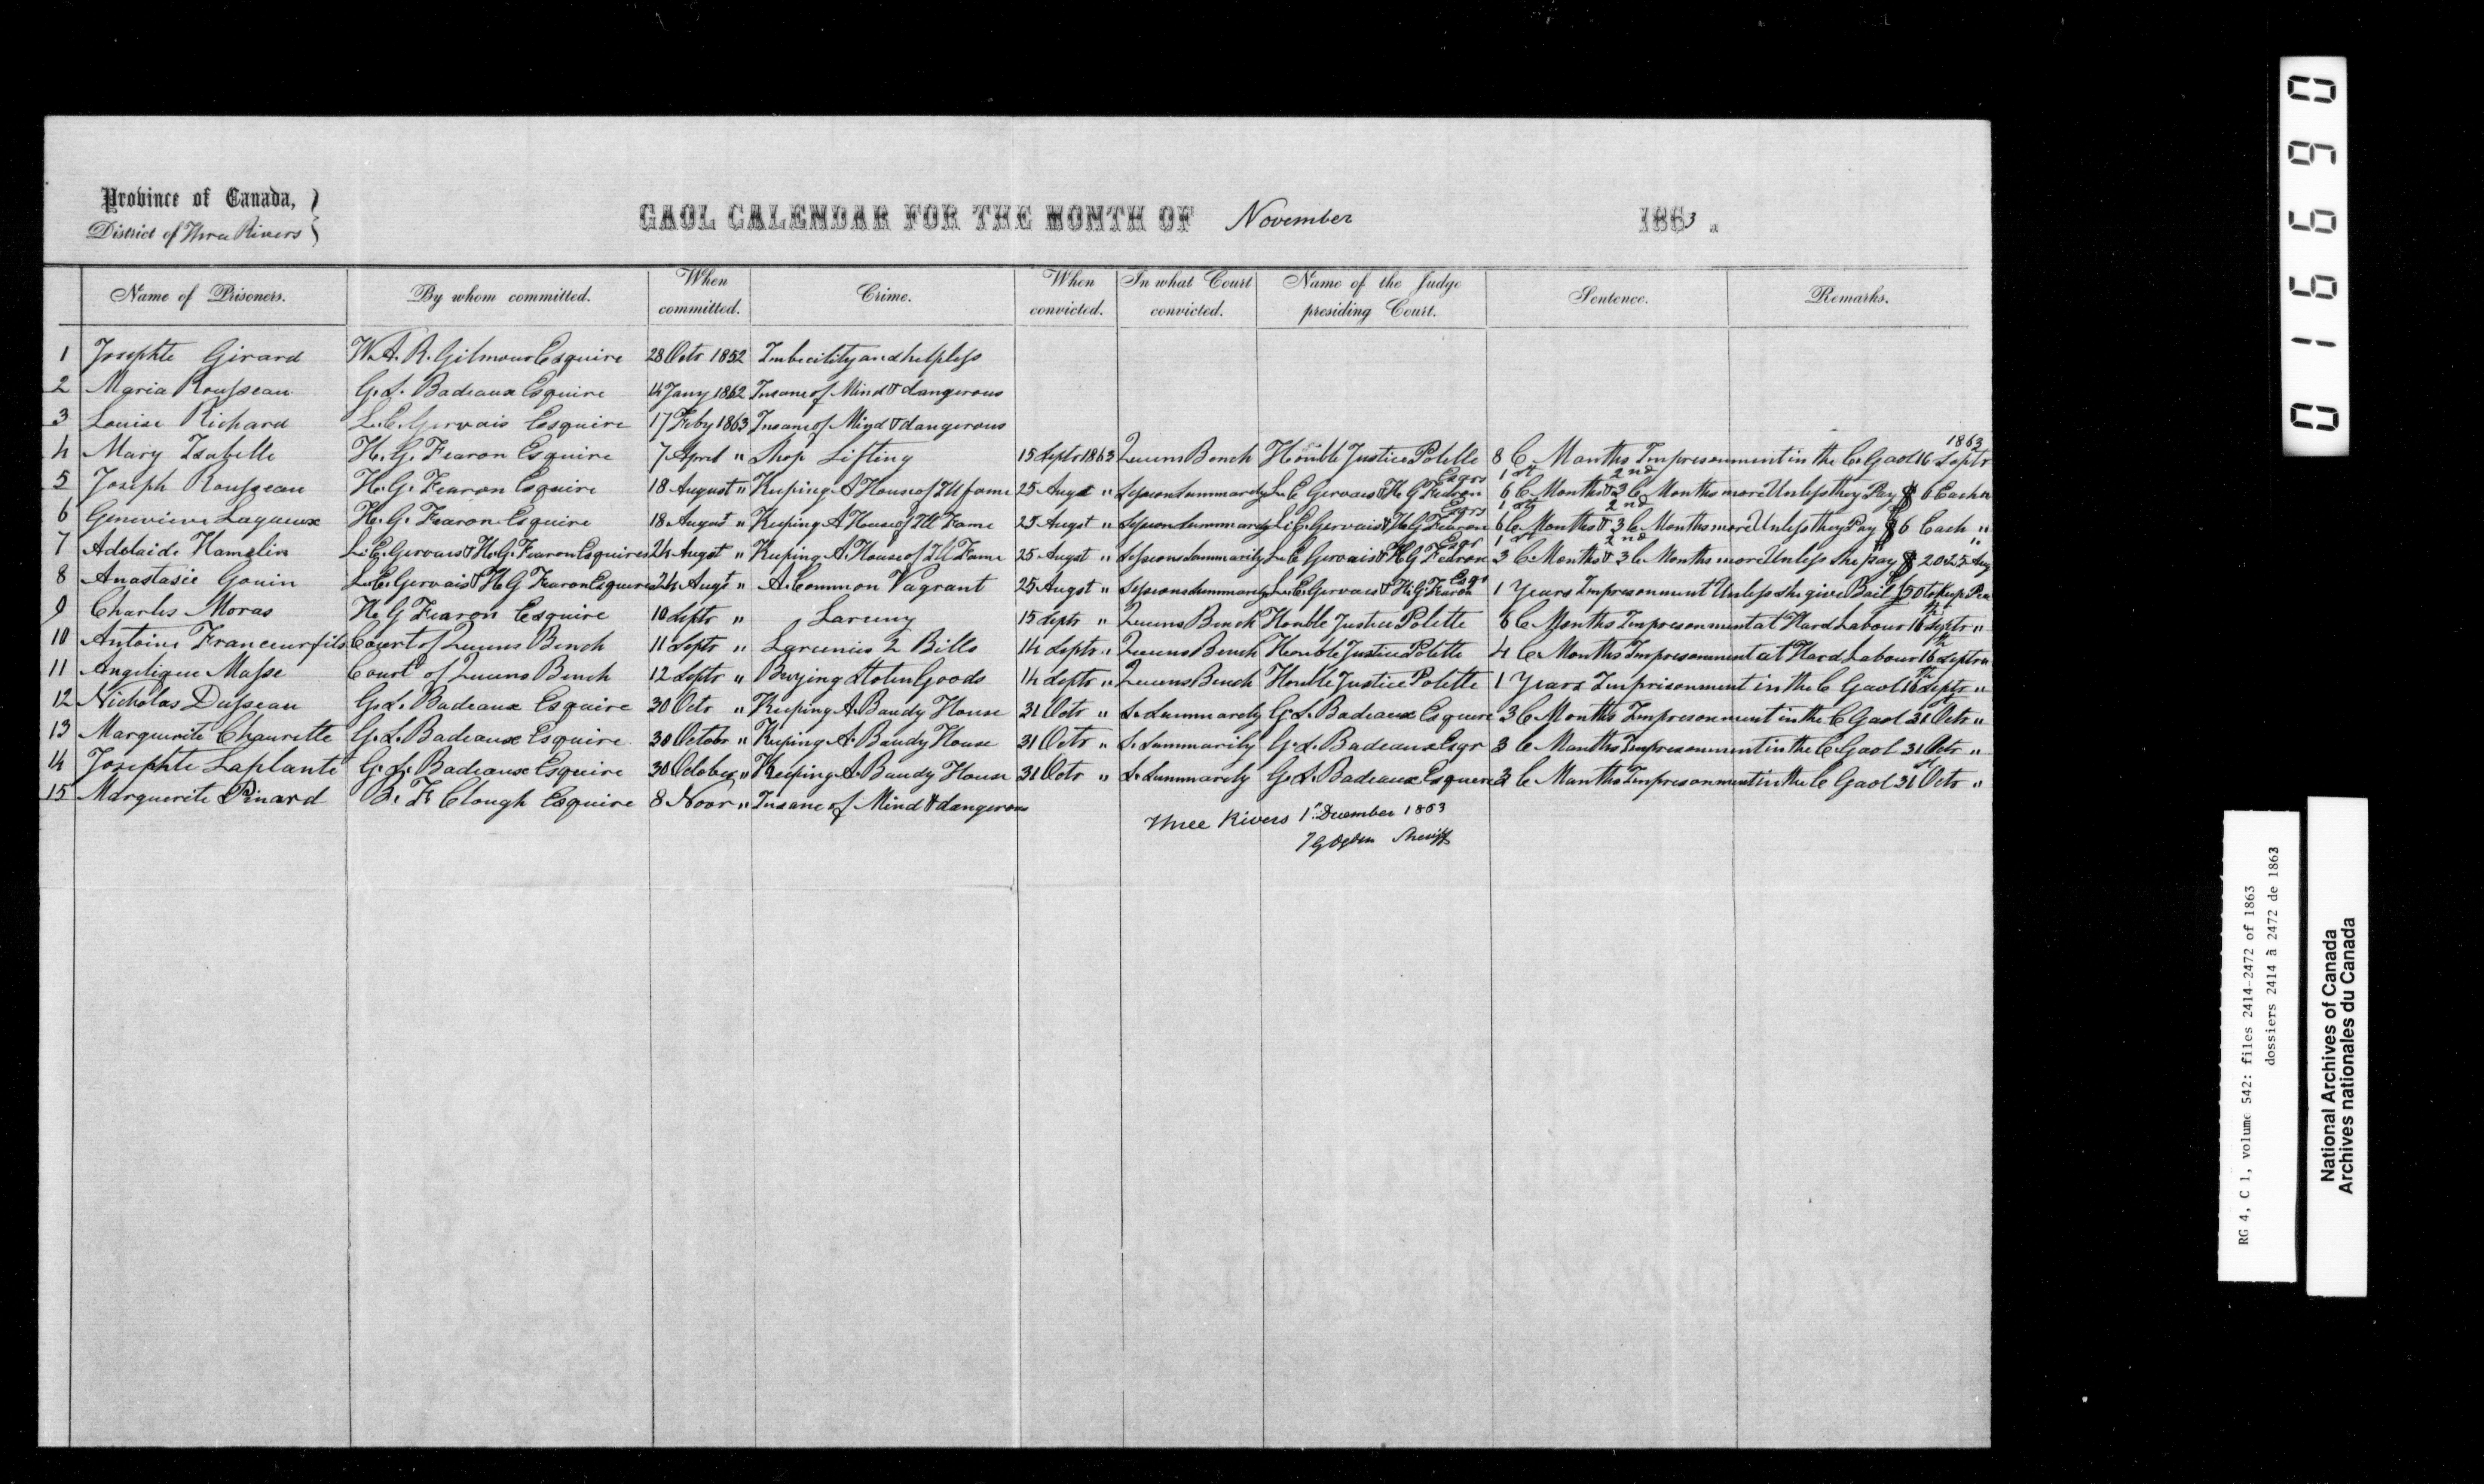 Province of Canada,
District of Three Rivers
GAOL CALENDAR FOR THE MONTH OF November 1863.
Name of Prisoners. By whom committed. When committed. Crime. When convicted. In what Court convicted. Name of the Judge presiding Court. Sentence. Remarks.
1 Josephte Girard W. A. R. Gilmour Esquire 28 Octr 1852 Imbecility and helpless
2 Maria Rousseau G. S. Badeaux Esquire 14 Jany 1862 Insane of Mind & dangerous
3 Louise Richard L. E. Gervais Esquire 17 Feby 1863 Insane of Mind & dangerous
4 Mary Isabelle H. G. Fearon Esquire 7 April " Shop Lifting 15 Septr 1863 Queens Bench Honble Justice Polette 8 C Months Impresonment in the C. Gaol 16 Septr 1863
5 Joseph Rousseau H. G. Fearon Esquire 18 August " Keeping A House of Ill fame 25 Augst " Session Summarily L. E. Gervais & H. G Fearon Esqrs 1st 6 C Months & 2nd 3 C. Months more Unless they Pay $ 6 Each "
6 Genevieve Layeux H. G. Fearon Esquire 18 August " Keeping A House of Ill Fame 25 Augst " Session Summarily L. E. Gervais & H. G Fearon Esqrs 1st 6 C Months & 2nd 3 C Months more Unless they Pay $ 6 Each "
7 Adelaide Hamelin L. E. Gervais & H. G. Fearon Esquires 24 Augst " Keeping A. House of Ill Fame 25 Augst " Sessions Summarily L. E Gervais & H. G Fearon Esqr 1st 3 C. Months & 2nd 3 C Months more Unless she pay $ 20 25 Aug "
8 Anastasie Gouin L. E. Gervais & H G Fearon Esquires 24 Augt " A. Common Vagrant 25 Augst " Sessions Summarily L. E. Gervais & H. G. Fearon Esqr 1 Years Impresonment Unless she give Bail £50 to Keep Pea
9 Charles Moras H. G Fearon Esquire 10 Septr " Larceny 15 Septr " Queens Bench Honble Justice Polette 6 C Months Impresonment at Hard Labour 16th Septr "
10 Antoine Franceur fils Court of Queens Bench 11 Septr " Larcenies 2 Bills 14 Septr " Queens Bench Honble Justice Polette 4 C. Months Impresonment at Hard Labour 16th Septr "
11 Angelique Masse Court of Queens Bench 12 Septr " Buying Stolen Goods 14 Septr " Queens Bench Honble Justice Polette 1 Years Imprisonment in the C Gaol 16th Septr "
12 Nicholas Dusseau G. S. Badeaux Esquire 30 Octr " Keeping A. Baudy House 31 Octr " S. Summarily G. S. Badeaux Esquire 3 C Months Impresonment in the C Gaol 31st Octr "
13 Marguerite Chaurette G. S. Badeaux Esquire 30 Octobr " Keeping A. Baudy House 31 Octr " S. Summarily G. S. Badeaux Esqr 3 C Months Impresonment in the C. Gaol 31 Octr "
14 Josephte Laplante G. S. Badeaux Esquire 30 October " Keeping A. Baudy House 31 Octr " S. Summarily G. S. Badeaux Esquire 3 C Months Impresonment in the C Gaol 31st Octr "
15 Marguerite Pinard B. F Clough Esquire 8 Novr " Insane of Mind & dangerous
Three Rivers 1st December 1863
I G Ogden Sheriff
016690
RG 4, C 1, volume 542: files 2414-2472 of 1863
dossiers 2414 à 2472 de 1863
National Archives of Canada
Archives nationales du Canada